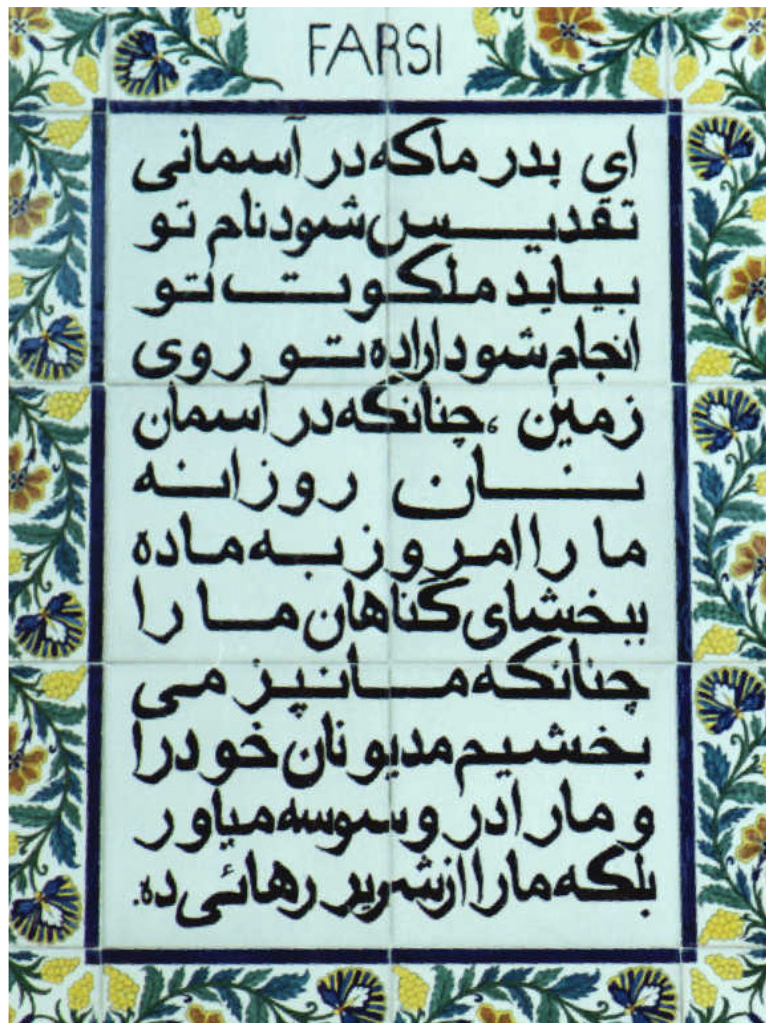 FARSI
ای پدر ما که در آسمانی
تقدیس شود نام تو
بیاید ملکوت تو
انجام شود اراده تو روی
زمین ،چنانکه در آسمان
نان روزانه
ما را امروز به ماده
ببخشای گناهان ما را
چنانکه ما نیز می
بخشیم مدیونان خود را
و ما را در وسوسه میاور
بلکه ما را از شریر رهائی ده.